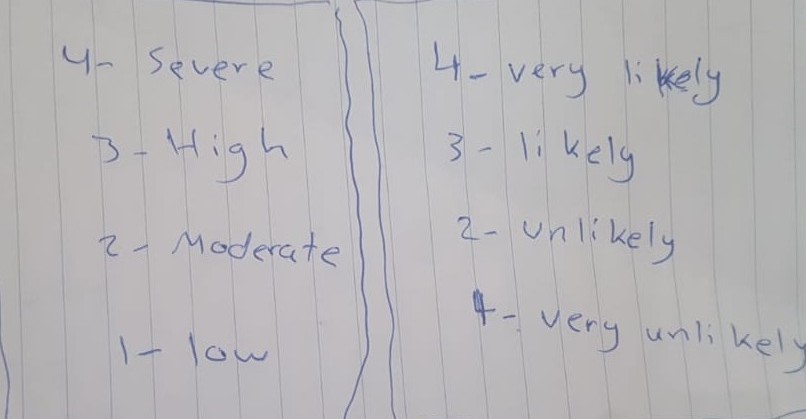 4- Severe
3- High
2- Moderate
1- low
4- very likely
3- likely
2- unlikely
1- very unlikely